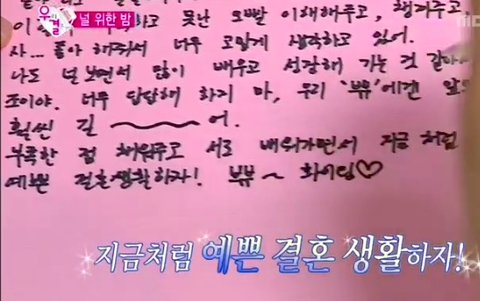 널 위한 밤
하고 못난 오빨 이해해주고, 챙겨주고,
사... 좋아 해줘서 너무 고맙게 생각하고 있어.
나도 널 보면서 많이 배우고 성장해 가는 것 같아
조이야. 너무 답답해 하지 마, 우리 '쀼'에겐
훨씬 길~어.
부족한 점 채워주고 서로 배워가면서 지금 처럼
예쁜 결혼생활하자! 쀼~ 화이팅♡
지금처럼 예쁜 결혼 생활하자!